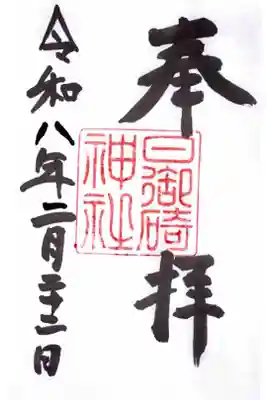 奉拝
日御碕
神社
令和八年二月二十三日